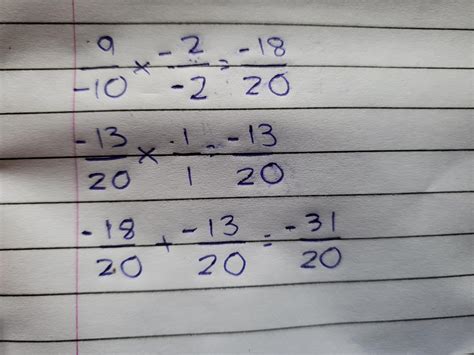 9/-10 × -2/-2 = -18/20
-13/20 × 1/1 = -13/20
-18/20 + -13/20 = -31/20